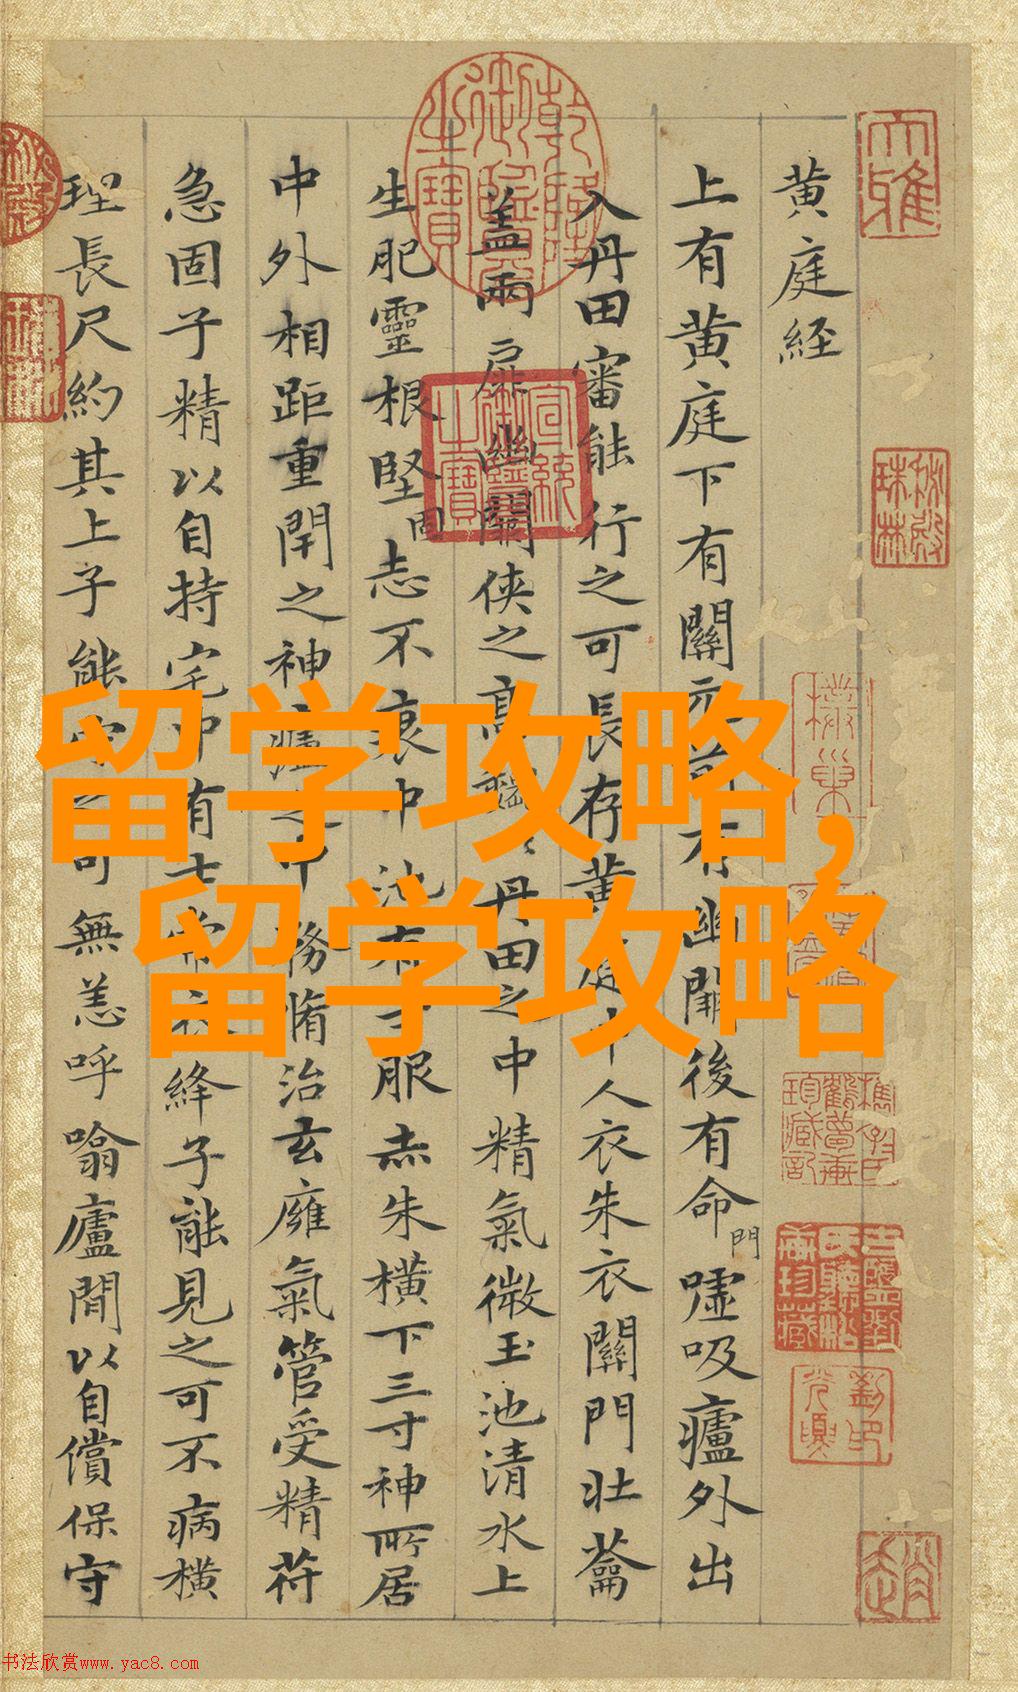 大雅
秘殿珠林
乾隆御覽之寶
宣統御覽之寶
黄庭経
上有黄庭下有關元前有幽關後有命門嘘吸廬外出
入丹田審能行之可長存黄庭中人衣朱衣關門壯蘥
盖兩扉幽關俠之高巍丶丹田之中精氣微玉池清水上
生肥靈根堅固志不衰中池有士服赤朱横下三寸神所居
中外相距重閇之神廬之中務脩治玄廱氣管受精符
急固子精以自持宅中有士常衣絳子能見之可不病横
理長尺約其上子能守之可無恙呼噏廬間以自償保守
留学攻略,
留学攻略
书法欣赏www.yac8.com